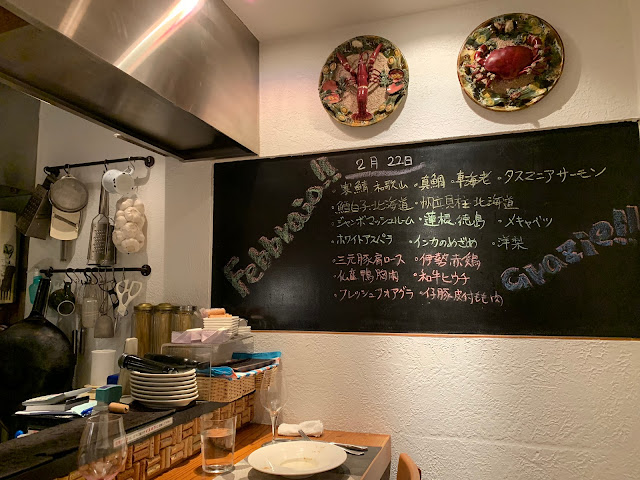 2月 22日
Febbraio!!
・寒鯛 和歌山 ・真鯛 ・車海老 ・タスマニアサーモン
・鱈白子北海道 ・帆立貝柱 北海道
・ジャンボマッシュルーム ・蓮根 徳島 ・メキャベツ
・ホワイトアスパラ ・インカのめざめ ・洋梨
・三元豚肩ロース ・伊勢赤鶏
・仏産 鴨胸肉 ・和牛ヒウチ
・フレッシュフォアグラ ・仔豚皮付もも肉
Grazie!!!